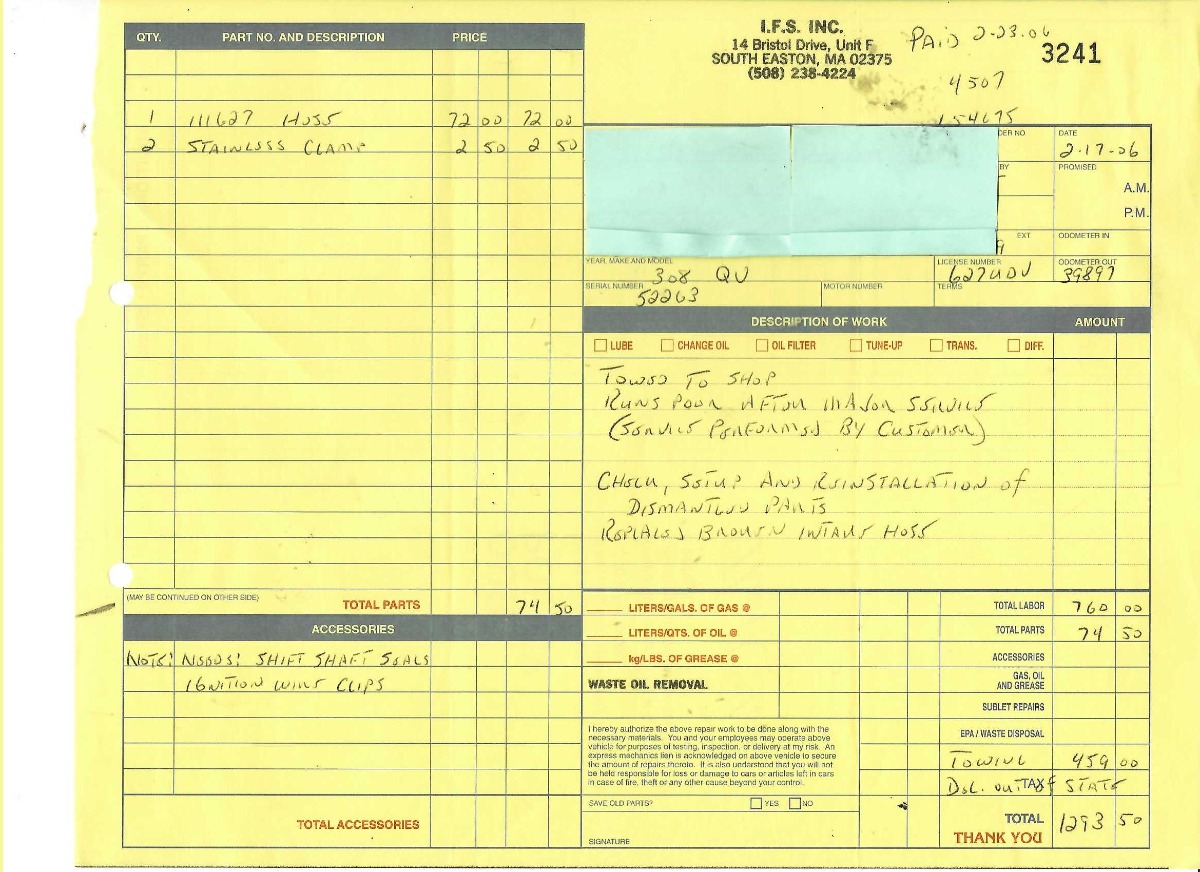 I.F.S. INC.
14 Bristol Drive, Unit F
SOUTH EASTON, MA 02375
(508) 238-4224
PAID 2-23-06
3241
4507
154675
QTY. PART NO. AND DESCRIPTION PRICE
1 111627 HOSE 72 00 72 00
2 STAINLESS CLAMP 2 50 2 50
(MAY BE CONTINUED ON OTHER SIDE) TOTAL PARTS 74 50
ACCESSORIES
NOTE: NEEDS: SHIFT SHAFT SEALS
IGNITION WIRE CLIPS
TOTAL ACCESSORIES
DER NO DATE
2-17-06
BY PROMISED
A.M.
P.M.
EXT ODOMETER IN
9
YEAR, MAKE AND MODEL 308 QV
LICENSE NUMBER 627UDV
ODOMETER OUT 39897
SERIAL NUMBER 52263
MOTOR NUMBER
TERMS
DESCRIPTION OF WORK AMOUNT
LUBE CHANGE OIL OIL FILTER TUNE-UP TRANS. DIFF.
TOWED TO SHOP
RUNS POOR AFTER MAJOR SERVICE
(SERVICE PERFORMED BY CUSTOMER)
CHECK, SETUP AND REINSTALLATION of
DISMANTLED PARTS
REPLACED BROKEN INTAKE HOSE
LITERS/GALS. OF GAS @ TOTAL LABOR 760 00
LITERS/QTS. OF OIL @ TOTAL PARTS 74 50
kg/LBS. OF GREASE @ ACCESSORIES
WASTE OIL REMOVAL GAS, OIL
AND GREASE
SUBLET REPAIRS
EPA / WASTE DISPOSAL
TOWING 459 00
DEL. OUT TAX of STATE
I hereby authorize the above repair work to be done along with the
necessary materials. You and your employees may operate above
vehicle for purposes of testing, inspection, or delivery at my risk. An
express mechanics lien is acknowledged on above vehicle to secure
the amount of repairs thereto. It is also understood that you will not
be held responsible for loss or damage to cars or articles left in cars
in case of fire, theft or any other cause beyond your control.
SAVE OLD PARTS? YES NO
SIGNATURE
TOTAL 1293 50
THANK YOU